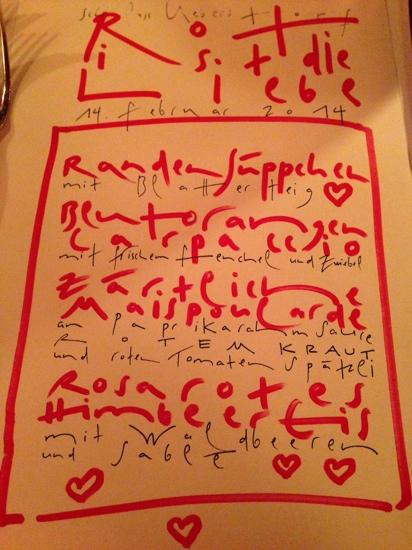 Schloss Ueberstorf
Rot
ist die
Liebe
14. februar 2014
Randensüppchen
mit Blätterteig
Blutorangen
carpaccio
mit frischem Fenchel und Zwiebel
Zärtliche
Maispoularde
an paprikarahmsauce
ROTEM KRAUT
und roten Tomaten Spätzli
Rosarotes
Himbeer Eis
mit Waldbeeren
und Sablé